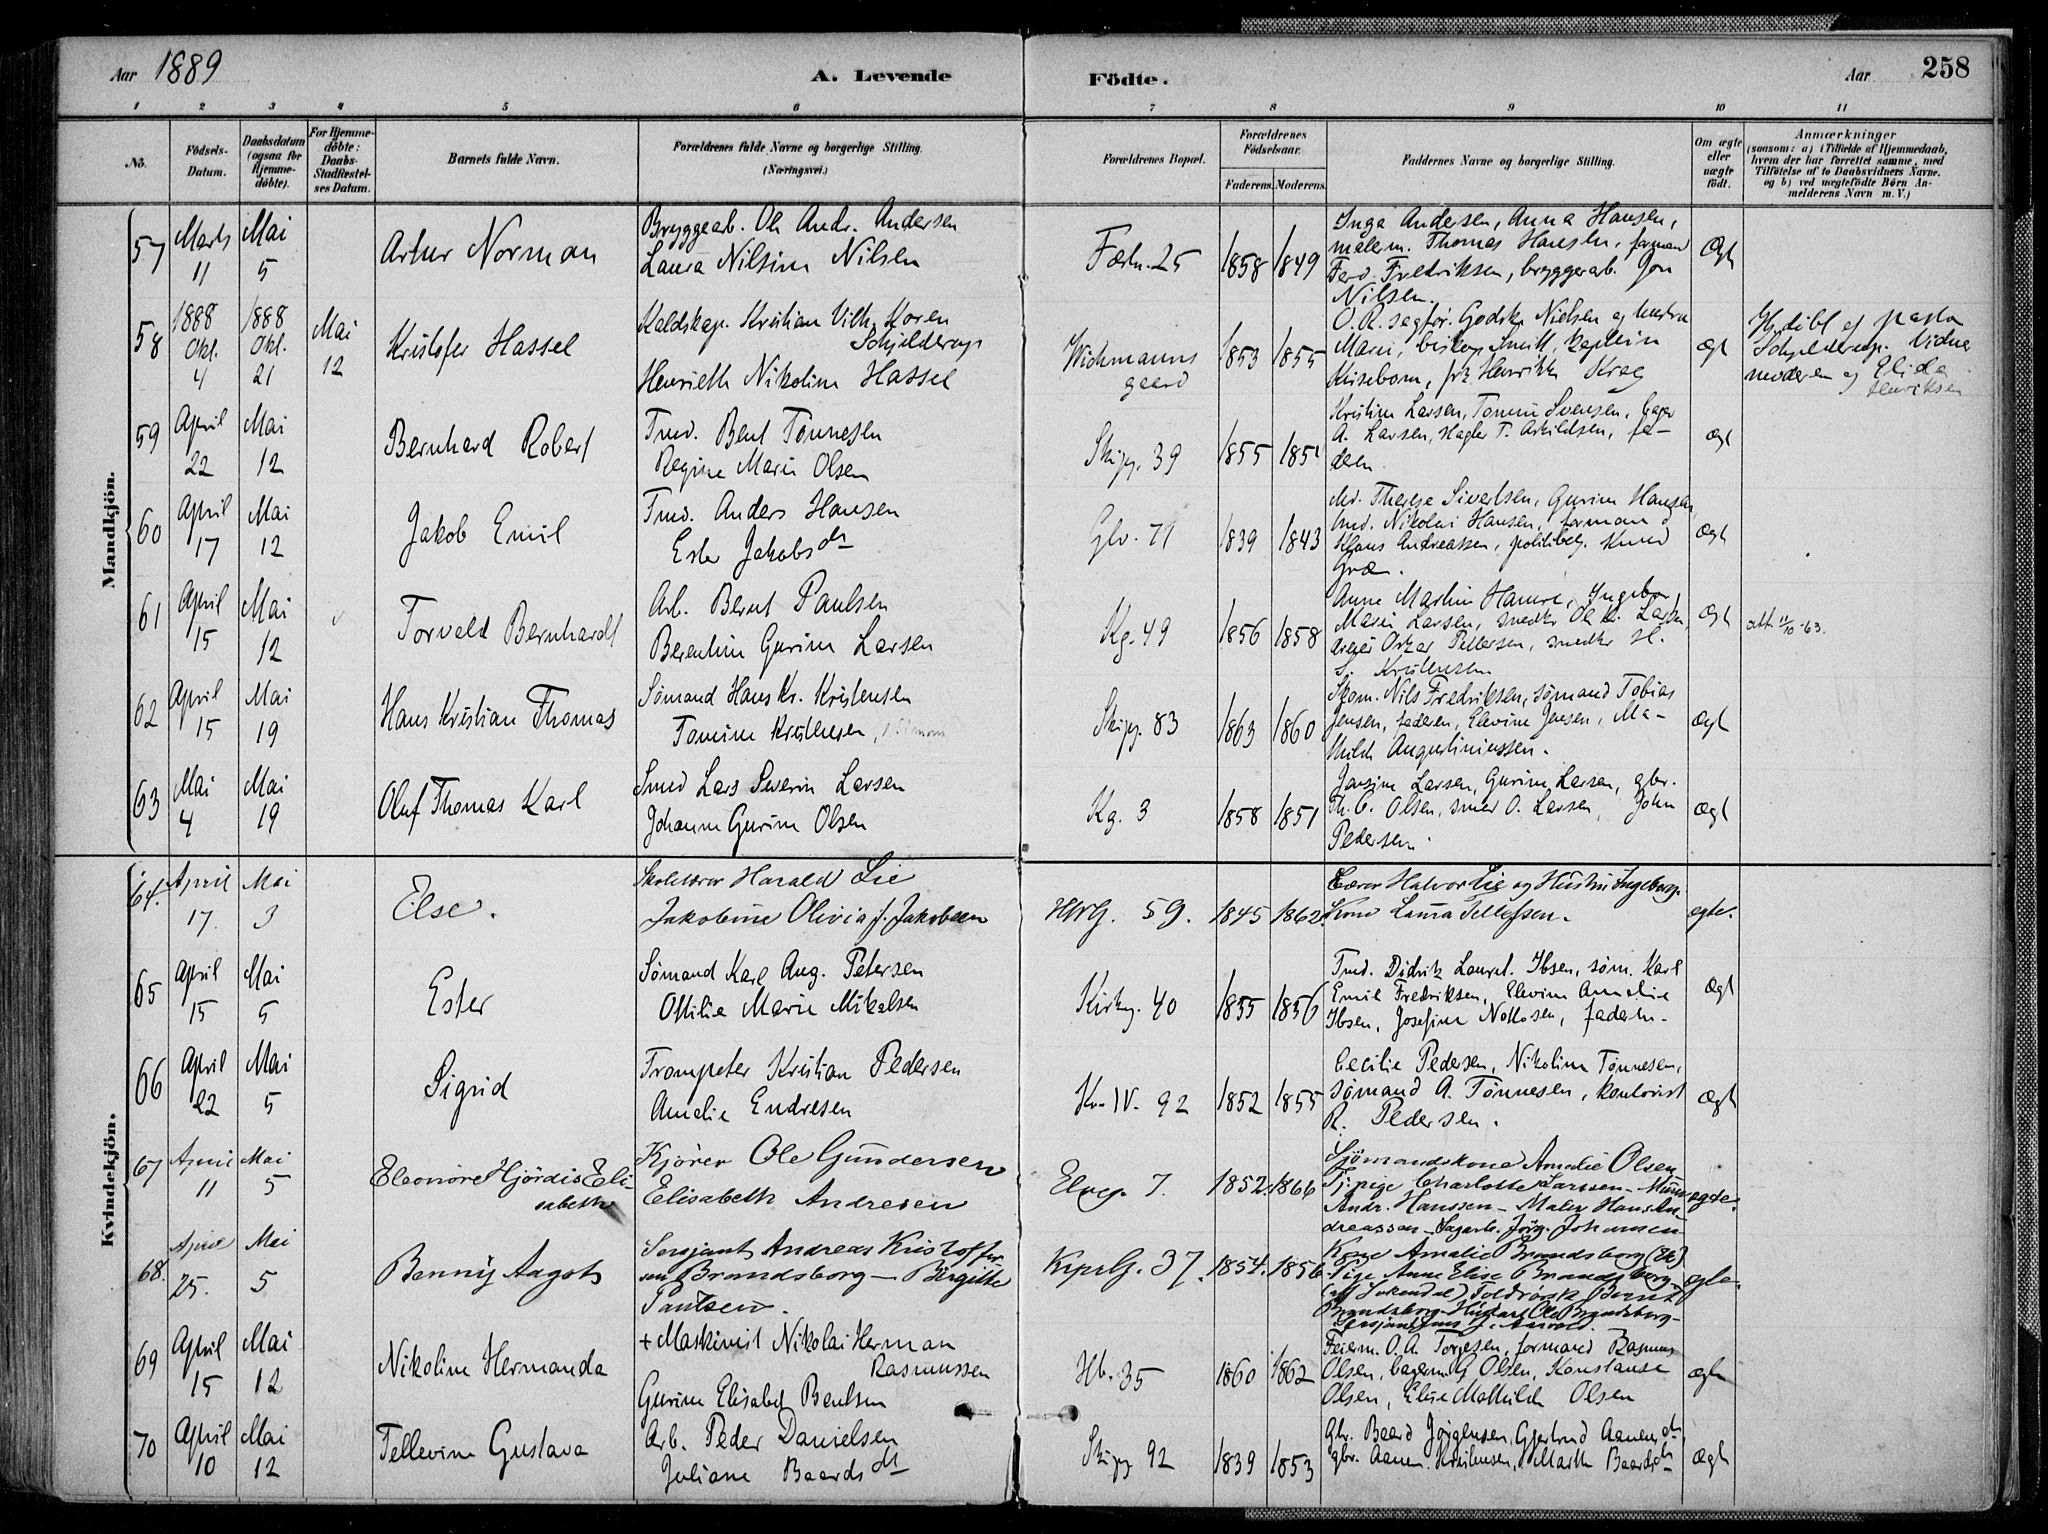 Aar 1889 A. Levende Födte. Aar 258
1 2 3 4 5 6 7 8 9 10 11
No. Födsels-Datum. Daabsdatum (ogsaa for Hjemmedöbte). For Hjemmedöbte: Daabs-Stadfæstelses Datum. Barnets fulde Navn. Forældrenes fulde Navne og borgerlige Stilling. (Næringsvei.) Forældrenes Bopæl. Forældrenes Födselsaar. Faderens. Moderens. Faddernes Navne og borgerlige Stilling. Om ægte eller uægte födt. Anmærkninger (saasom: a) i Tilfælde af Hjemmedaab, hvem der har forrettet samme, med Tilföielse af to Daabsvidners Navne, og b) ved uægtefödte Börn Anmelderens Navn m. V.)
Mandkjön.
57 Marts 11 Mai 5 Artur Norman Bryggearb. Ole Andr. Andersen
Laura Nilsine Nilsen
Fæstn. 25 1858 1849 Inga Andersen, Anna Hansen,
malerm. Thomas Hansen, formand
Ferd. Fredriksen, bryggerarb. Jon
Nilsen. Ægt
58 1888 Okt. 4 1888 Okt. 21 Mai 12 Kristofer Hassel Kaldskap. Kristian Vilh. Koren
Schjelderup
Henriette Nikoline Hassel
Wichmanns
gaard 1853 1855 O. R. sagför. Godsk. Nielsen og hustru
Marie, biskop Smitt, kaptein
frk. Henrikke Krag ægt
Hj. döbt af pastor
Schjelderup. Vidne
moderen og Elida
Henriksen
59 April 22 Mai 12 Bernhard Robert Tmd. Bent Tönnesen
Regine Marie Olsen
Skipp. 39 1855 1851 Kristine Larsen, Tomine Svensen, bager
A. Larsen, slagter T. Askildsen, fa-
deren. ægt
60 April 17 Mai 12 Jakob Emil Tmd. Anders Hansen
Ester Jakobsdtr
Glv. 71 1839 1843 Md. Therese Sivertsen, Gurine Hansen,
tmd. Nikolai Hansen, formand
Klaus Andreassen, politibetj. Knud
ægt
61 April 15 Mai 12 Torvald Bernhardt Arb. Bernt Paulsen
Berentine Gurine Larsen
Kg. 49 1856 1858 Anne Martine Hamre, Ingebor
Marie Larsen, snedker Ole Kr. Larsen,
dreier Oskar Pettersen, snedker H.
S. Kristensen ægt att. 11/10-63.
62 April 15 Mai 19 Hans Kristian Thomas Sömand Hans Kr. Kristensen
Tomine Kristensen
Skipp. 83 1863 1860 Skom. Nils Fredriksen, sömand Tobias
Jensen, faderen, Elevine Jensen, Ma-
thilde Augustiniussen. ægt
63 Mai 4 Mai 19 Oluf Thomas Karl Smed Lars Severin Larsen
Johanne Gurine Olsen
Kg. 3 1858 1851 Jansine Larsen, Gurine Larsen, gbr.
Th. C. Olsen, smed O. Larsen, John
Pedersen. ægt
Kvindekjön.
64. April 17. Mai 3 Else. Skolelærer Harald Lie
Jakobine Olivia f. Jakobsen
HvG. 59. 1845 1862. Lærer Halvor Lie og Hustru Ingeborg.
Kone Laura Tellefsen. egte.
65 April 15 Mai 5 Ester Sömand Karl Aug. Petersen
Ottilie Marie Mikalsen
Kirkg. 40 1855 1856 Tmd. Didrik Laurel. Ibsen, söm. Karl
Emil Fredriksen, Elevine Amalie
Ibsen, Josefine Nottosen, faderen. Ægt
66 April 22 Mai 5 Sigrid Trompeter Kristian Pedersen
Amalie Endresen
Kv. IV. 92 1852 1855 Cecilie Pedersen, Nikoline Tönnesen,
sömand A. Tönnesen, kontorist
R. Pedersen. Ægt
67 April 11 Mai 5 Eleonore Hjördis Eli-
sabeth Kjörer Ole Gundersen
Elisabeth Andresen
Elveg. 7. 1852. 1866 Sjömandskone Amalie Olsen
Tj. pige Charlotte Larssen - Murer
Andr. Hanssen - Maler Hans An-
dreassen - Sagarb. Jörg. Johansen egte.
68. April 25. Mai 5 Benny Aagot Sersjant Andreas Kristoffer-
sen Brandsborg - Birgitte
Paulsen.
KprlG. 37. 1854. 1856. Kone Amalie Brandsborg
- Pige Anne Elise Brandsborg -
Toldrorsk. Bernt
Brandsborg - Husear. Ole Brandsborg -
egte.
69 April 15 Mai 12 Nikoline Hermanda + Maskinist Nikolai Herman
Rasmussen
Gurine Elisabet Bentsen
Hb. 35 1860 1862 Feierm. O. A. Torjesen, formand Rasmus
Olsen, bagerm. G. Olsen, Konstanse
Olsen, Elise Mathilde Olsen ægte
70 April 10 Mai 12 Tellevine Gustava Arb. Peder Danielsen
Juliane Baardsdt
Skipp 92 1839 1853 Gbr. Baard Jörgensen, Gjertrud Aanensdt,
gbr. Aanen Kristensen, Marthe Baardsdt ægt